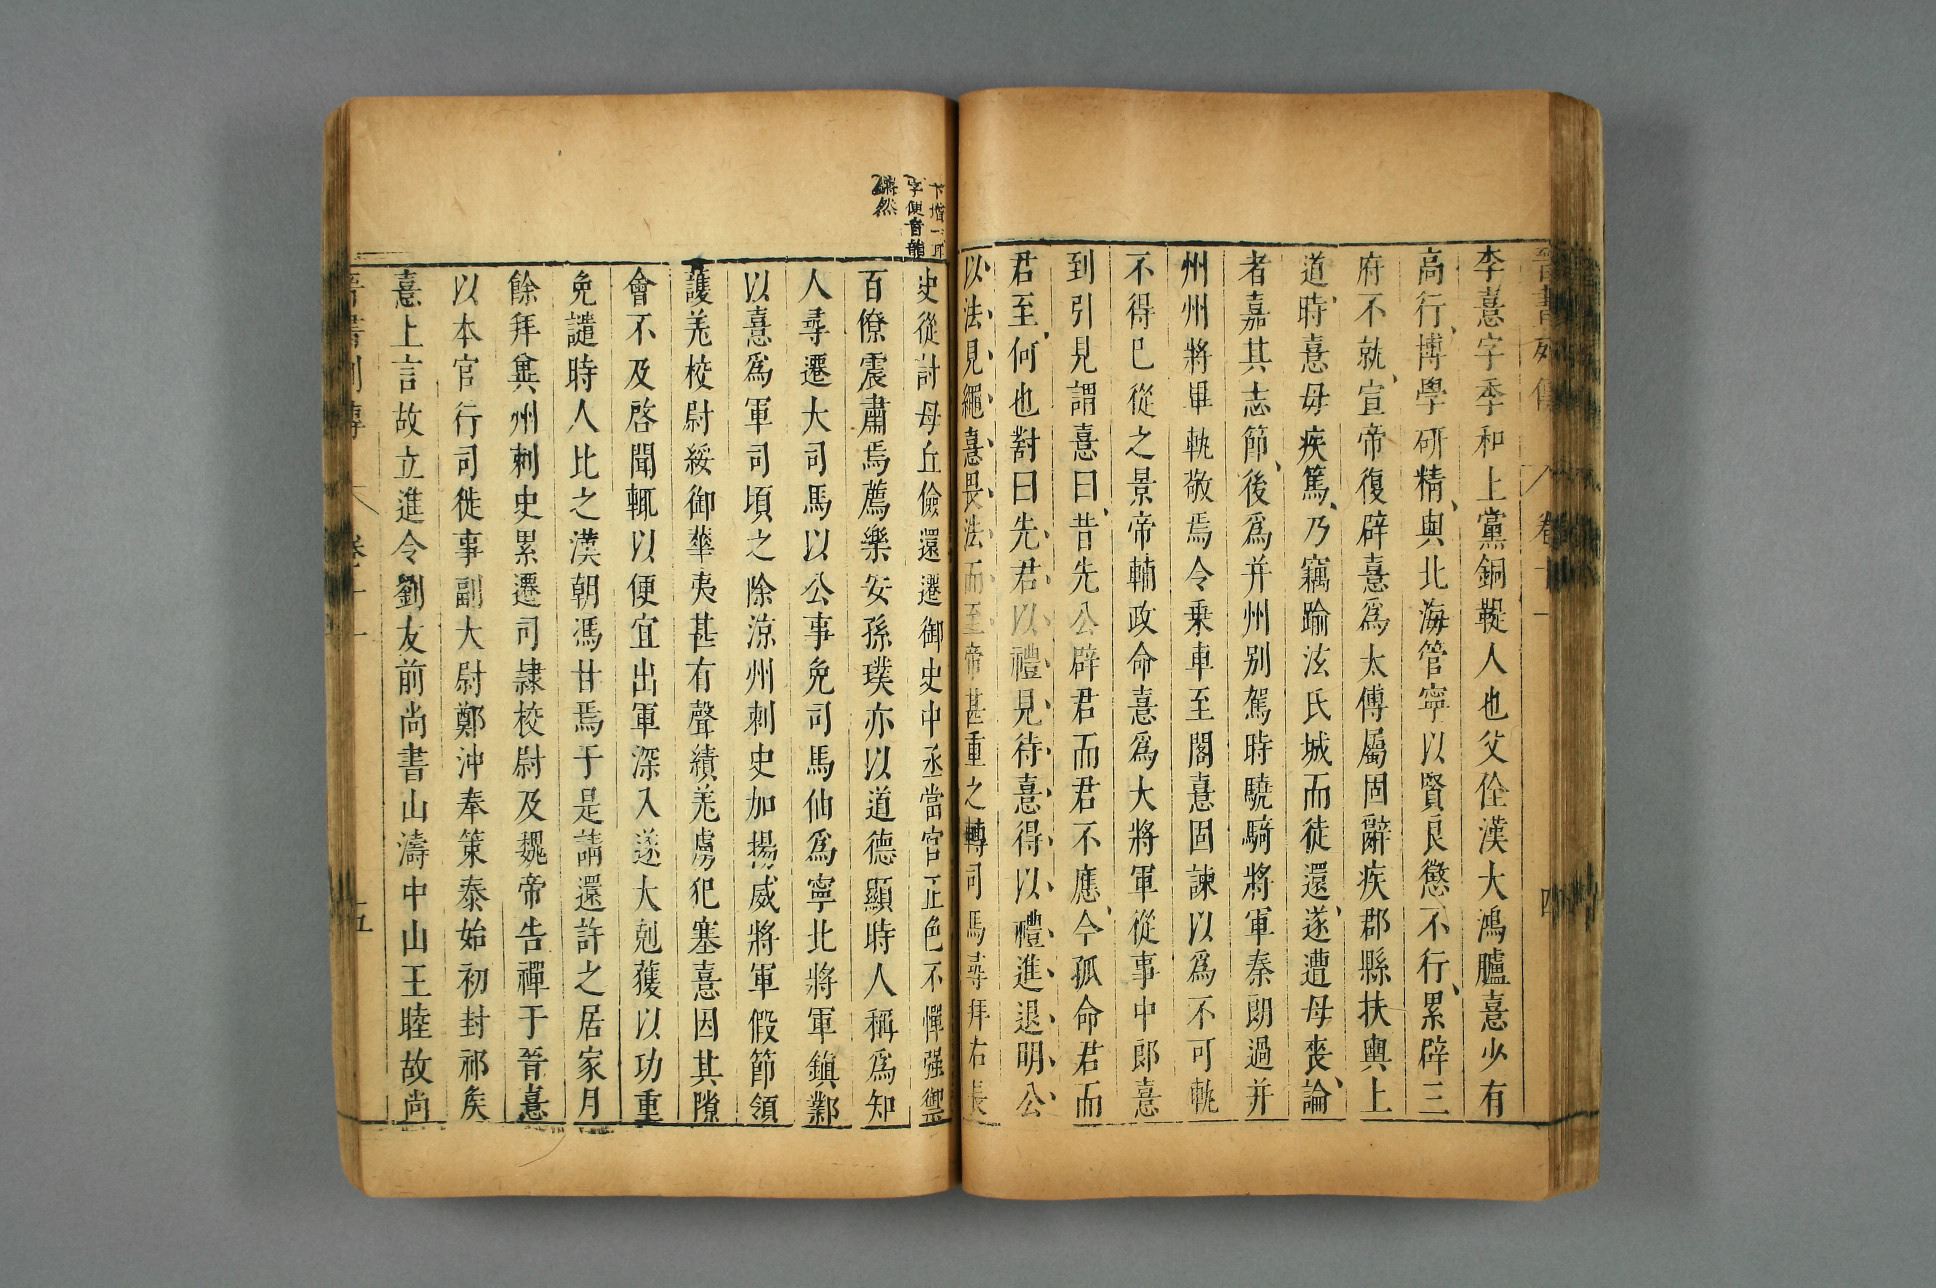 晉書列傳 卷十一 四
李憙字季和上黨銅鞮人也父佺漢大鴻臚憙少有
高行博學研精與北海管寧以賢良懲不行累辟三
府不就宣帝復辟憙爲太傅屬固辭疾郡縣扶輿上
道時憙母疾篤乃竊踰泫氏城而徒還遂遭母喪論
者嘉其志節後爲并州別駕時驍騎將軍秦朗過并
州州將畢軌敬焉令乗車至閣憙固諫以爲不可軌
不得已從之景帝輔政命憙爲大將軍從事中郎憙
到引見謂憙曰昔先公辟君而君不應今孤命君而
君至何也對曰先君以禮見待憙得以禮進退明公
以法見繩憙畏法而至帝甚重之轉司馬尋拜右長
史從討毋丘儉還遷御史中丞當官正色不憚强禦
百僚震肅焉薦樂安孫璞亦以道德顯時人稱爲知
人尋遷大司馬以公事免司馬伷爲寧北將軍鎮鄴
以憙爲軍司頃之除涼州刺史加揚威將軍假節領
護羌校尉綏御華夷甚有聲績羌虜犯塞憙因其隙
會不及啓聞輒以便宜出軍深入遂大剋獲以功重
免譴時人比之漢朝馮甘焉于是請還許之居家月
餘拜兾州刺史累遷司隷校尉及魏帝告禪于晉憙
以本官行司徙事副大尉鄭沖奉策泰始初封祁矦
憙上言故立進令劉友前尚書山濤中山王睦故尚
晉書列傳 卷十一 五
字便音韻
然